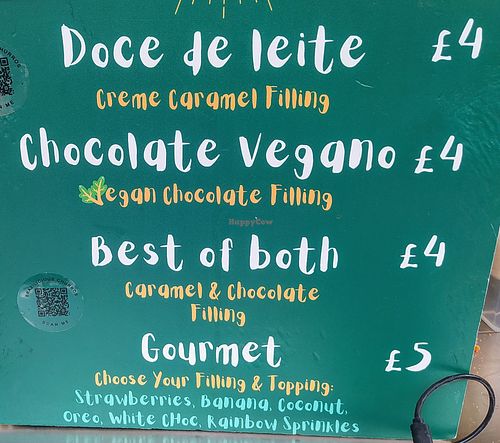 Doce de leite £4
Creme Caramel Filling
Chocolate Vegano £4
Vegan Chocolate Filling
HappyCow
Best of both £4
Caramel & Chocolate
Filling
SCAN ME
Gourmet £5
Choose Your Filling & Topping:
Strawberries, Banana, Coconut,
Oreo, White CHoc, Rainbow Sprinkles